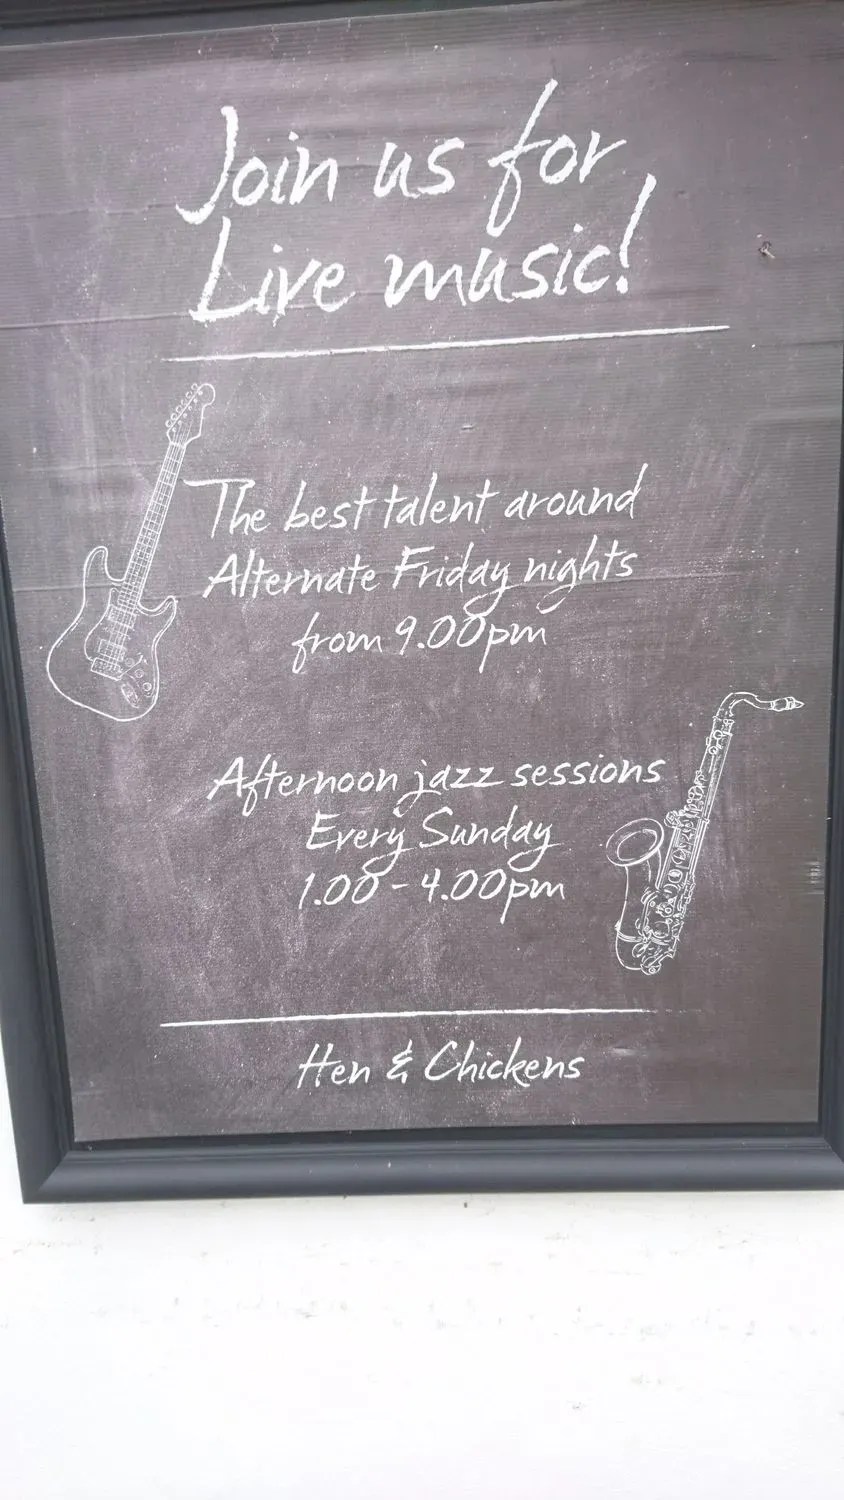 Join us for
Live music!
The best talent around
Alternate Friday nights
from 9.00pm
Afternoon jazz sessions
Every Sunday
1.00 - 4.00pm
Hen & Chickens